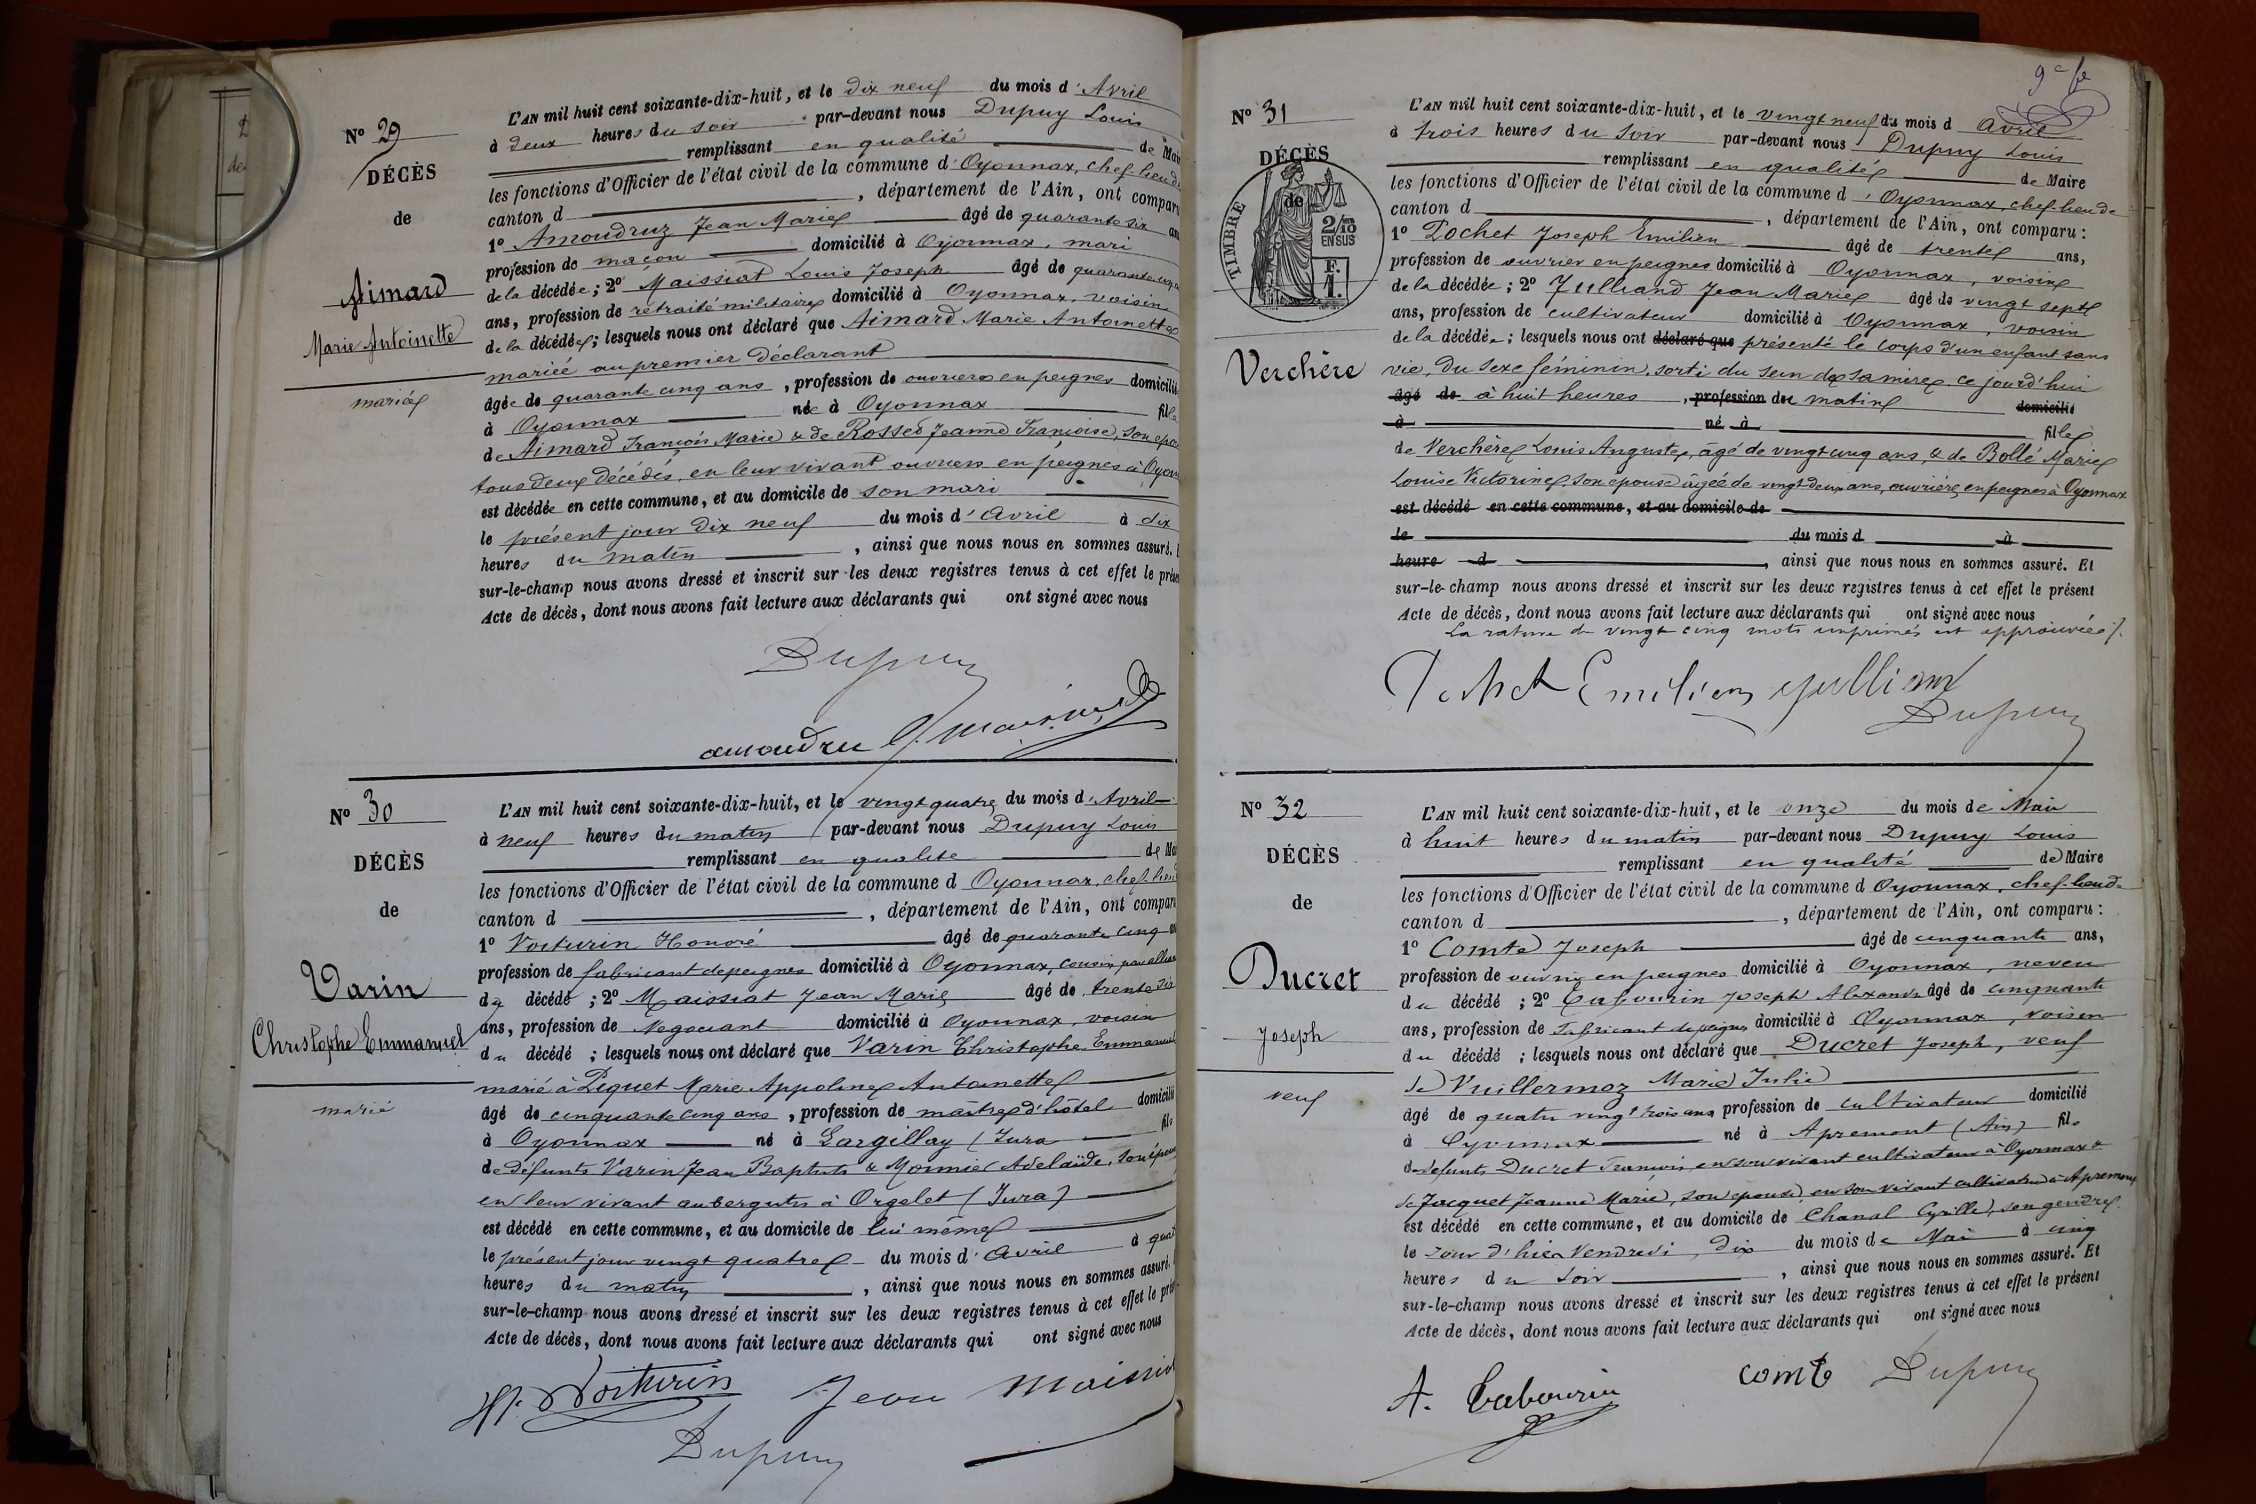 Nº 29
DÉCÈS
de
Aimard
Marie Antoinette
mariée
L'AN mil huit cent soixante-dix-huit, et le dix neuf du mois d'Avril
à deux heures du soir par-devant nous Dupuy Louis
remplissant en qualité de Mai
les fonctions d'Officier de l'état civil de la commune d'Oyonnax, chef-lieu de
canton d , département de l'Ain, ont compar
1º Amoudruz Jean Marie âgé de quarante six an
profession de maçon domicilié à Oyonnax, mari
de la décédée ; 2º Maissiat Louis Joseph âgé de quarante
ans, profession de retraité militaire domicilié à Oyonnax, voisin
de la décédée ; lesquels nous ont déclaré que Aimard Marie Antoinette
mariée au premier déclarant
âgée de quarante cinq ans , profession de ouvrière en peignes domicilié
à Oyonnax née à Oyonnax fille
de Aimard François Marie & de Rosset Jeanne Françoise, son épou
tous deux décédés, en leur vivant ouvriers en peignes à Oyon
est décédée en cette commune, et au domicile de son mari
le présent jour dix neuf du mois d'Avril à dix
heures du matin , ainsi que nous nous en sommes assuré.
sur-le-champ nous avons dressé et inscrit sur les deux registres tenus à cet effet le prése
Acte de décès, dont nous avons fait lecture aux déclarants qui ont signé avec nous
Dupuy
amoudru L. Maissiat
Nº 30
DÉCÈS
de
Varin
Christophe Emmanuel
marié
L'AN mil huit cent soixante-dix-huit, et le vingt quatre du mois d'Avril
à neuf heures du matin par-devant nous Dupuy Louis
remplissant en qualité de Mai
les fonctions d'Officier de l'état civil de la commune d Oyonnax, chef-lieu
canton d , département de l'Ain, ont compar
1º Voiturin Honoré âgé de quarante cinq
profession de fabricant de peignes domicilié à Oyonnax, cousin par allian
du décédé ; 2º Maissiat Jean Marie âgé de trente six
ans, profession de Négociant domicilié à Oyonnax, voisin
du décédé ; lesquels nous ont déclaré que Varin Christophe Emmanuel
marié à Piquet Marie Appoline Antoinette
âgé de cinquante cinq ans , profession de maître d'hôtel domicilié
à Oyonnax né à Largillay (Jura fils
de défunts Varin Jean Baptiste & Monnier Adelaïde, son épou
en leur vivant aubergistes à Orgelet (Jura)
est décédé en cette commune, et au domicile de lui même
le présent jour vingt quatre du mois d'Avril à quat
heures du matin , ainsi que nous nous en sommes assuré.
sur-le-champ nous avons dressé et inscrit sur les deux registres tenus à cet effet le prés
Acte de décès, dont nous avons fait lecture aux déclarants qui ont signé avec nous
Hé. Voiturin Jean Maissiat
Dupuy
Nº 31
DÉCÈS
de
TIMBRE
2/10
EN SUS
F.
1.
Verchère
L'AN mil huit cent soixante-dix-huit, et le vingt neuf du mois d Avril
à trois heures du soir par-devant nous Dupuy Louis
remplissant en qualité de Maire
les fonctions d'Officier de l'état civil de la commune d'Oyonnax, chef-lieu de
canton d , département de l'Ain, ont comparu :
1º Pochet Joseph Emilien âgé de trente ans,
profession de ouvrier en peignes domicilié à Oyonnax, voisin
de la décédée ; 2º Julliand Jean Marie âgé de vingt sept
ans, profession de cultivateur domicilié à Oyonnax, voisin
de la décédée ; lesquels nous ont déclaré que présenté le corps d'un enfant sans
vie, du sexe féminin, sorti du sein de sa mère, ce jourd'hui
âgé de à huit heures , profession du matin domicilié
à né à fille
de Verchère Louis Auguste, âgé de vingt cinq ans, & de Bollé Marie
Louise Victorine, son épouse âgée de vingt deux ans, ouvrière en peignes à Oyonnax
est décédé en cette commune, et au domicile de
le du mois d à
heure d , ainsi que nous nous en sommes assuré. Et
sur-le-champ nous avons dressé et inscrit sur les deux registres tenus à cet effet le présent
Acte de décès, dont nous avons fait lecture aux déclarants qui ont signé avec nous
La rature de vingt cinq mots imprimés est approuvée
Pochet Emilien Julliand
Dupuy
Nº 32
DÉCÈS
de
Ducret
Joseph
veuf
L'AN mil huit cent soixante-dix-huit, et le onze du mois de Mai
à huit heures du matin par-devant nous Dupuy Louis
remplissant en qualité de Maire
les fonctions d'Officier de l'état civil de la commune d Oyonnax, chef-lieu de
canton d , département de l'Ain, ont comparu :
1º Comte Joseph âgé de cinquante ans,
profession de ouvrier en peignes domicilié à Oyonnax, neveu
du décédé ; 2º Tabourin Joseph Alexandre âgé de cinquante
ans, profession de fabricant de peignes domicilié à Oyonnax, voisin
du décédé ; lesquels nous ont déclaré que Ducret Joseph, veuf
de Vuillermoz Marie Julie
âgé de quatre vingt trois ans profession de cultivateur domicilié
à Oyonnax né à Apremont (Ain) fils
de défunts Ducret François, en son vivant cultivateur à Oyonnax &
de Jacquet Jeanne Marie, son épouse, en son vivant cultivateur à Apremont
est décédé en cette commune, et au domicile de Chanal Cyrille, son gendre
le jour d'hier Vendredi, dix du mois de Mai à cinq
heures du soir , ainsi que nous nous en sommes assuré. Et
sur-le-champ nous avons dressé et inscrit sur les deux registres tenus à cet effet le présent
Acte de décès, dont nous avons fait lecture aux déclarants qui ont signé avec nous
A. Tabourin comte Dupuy